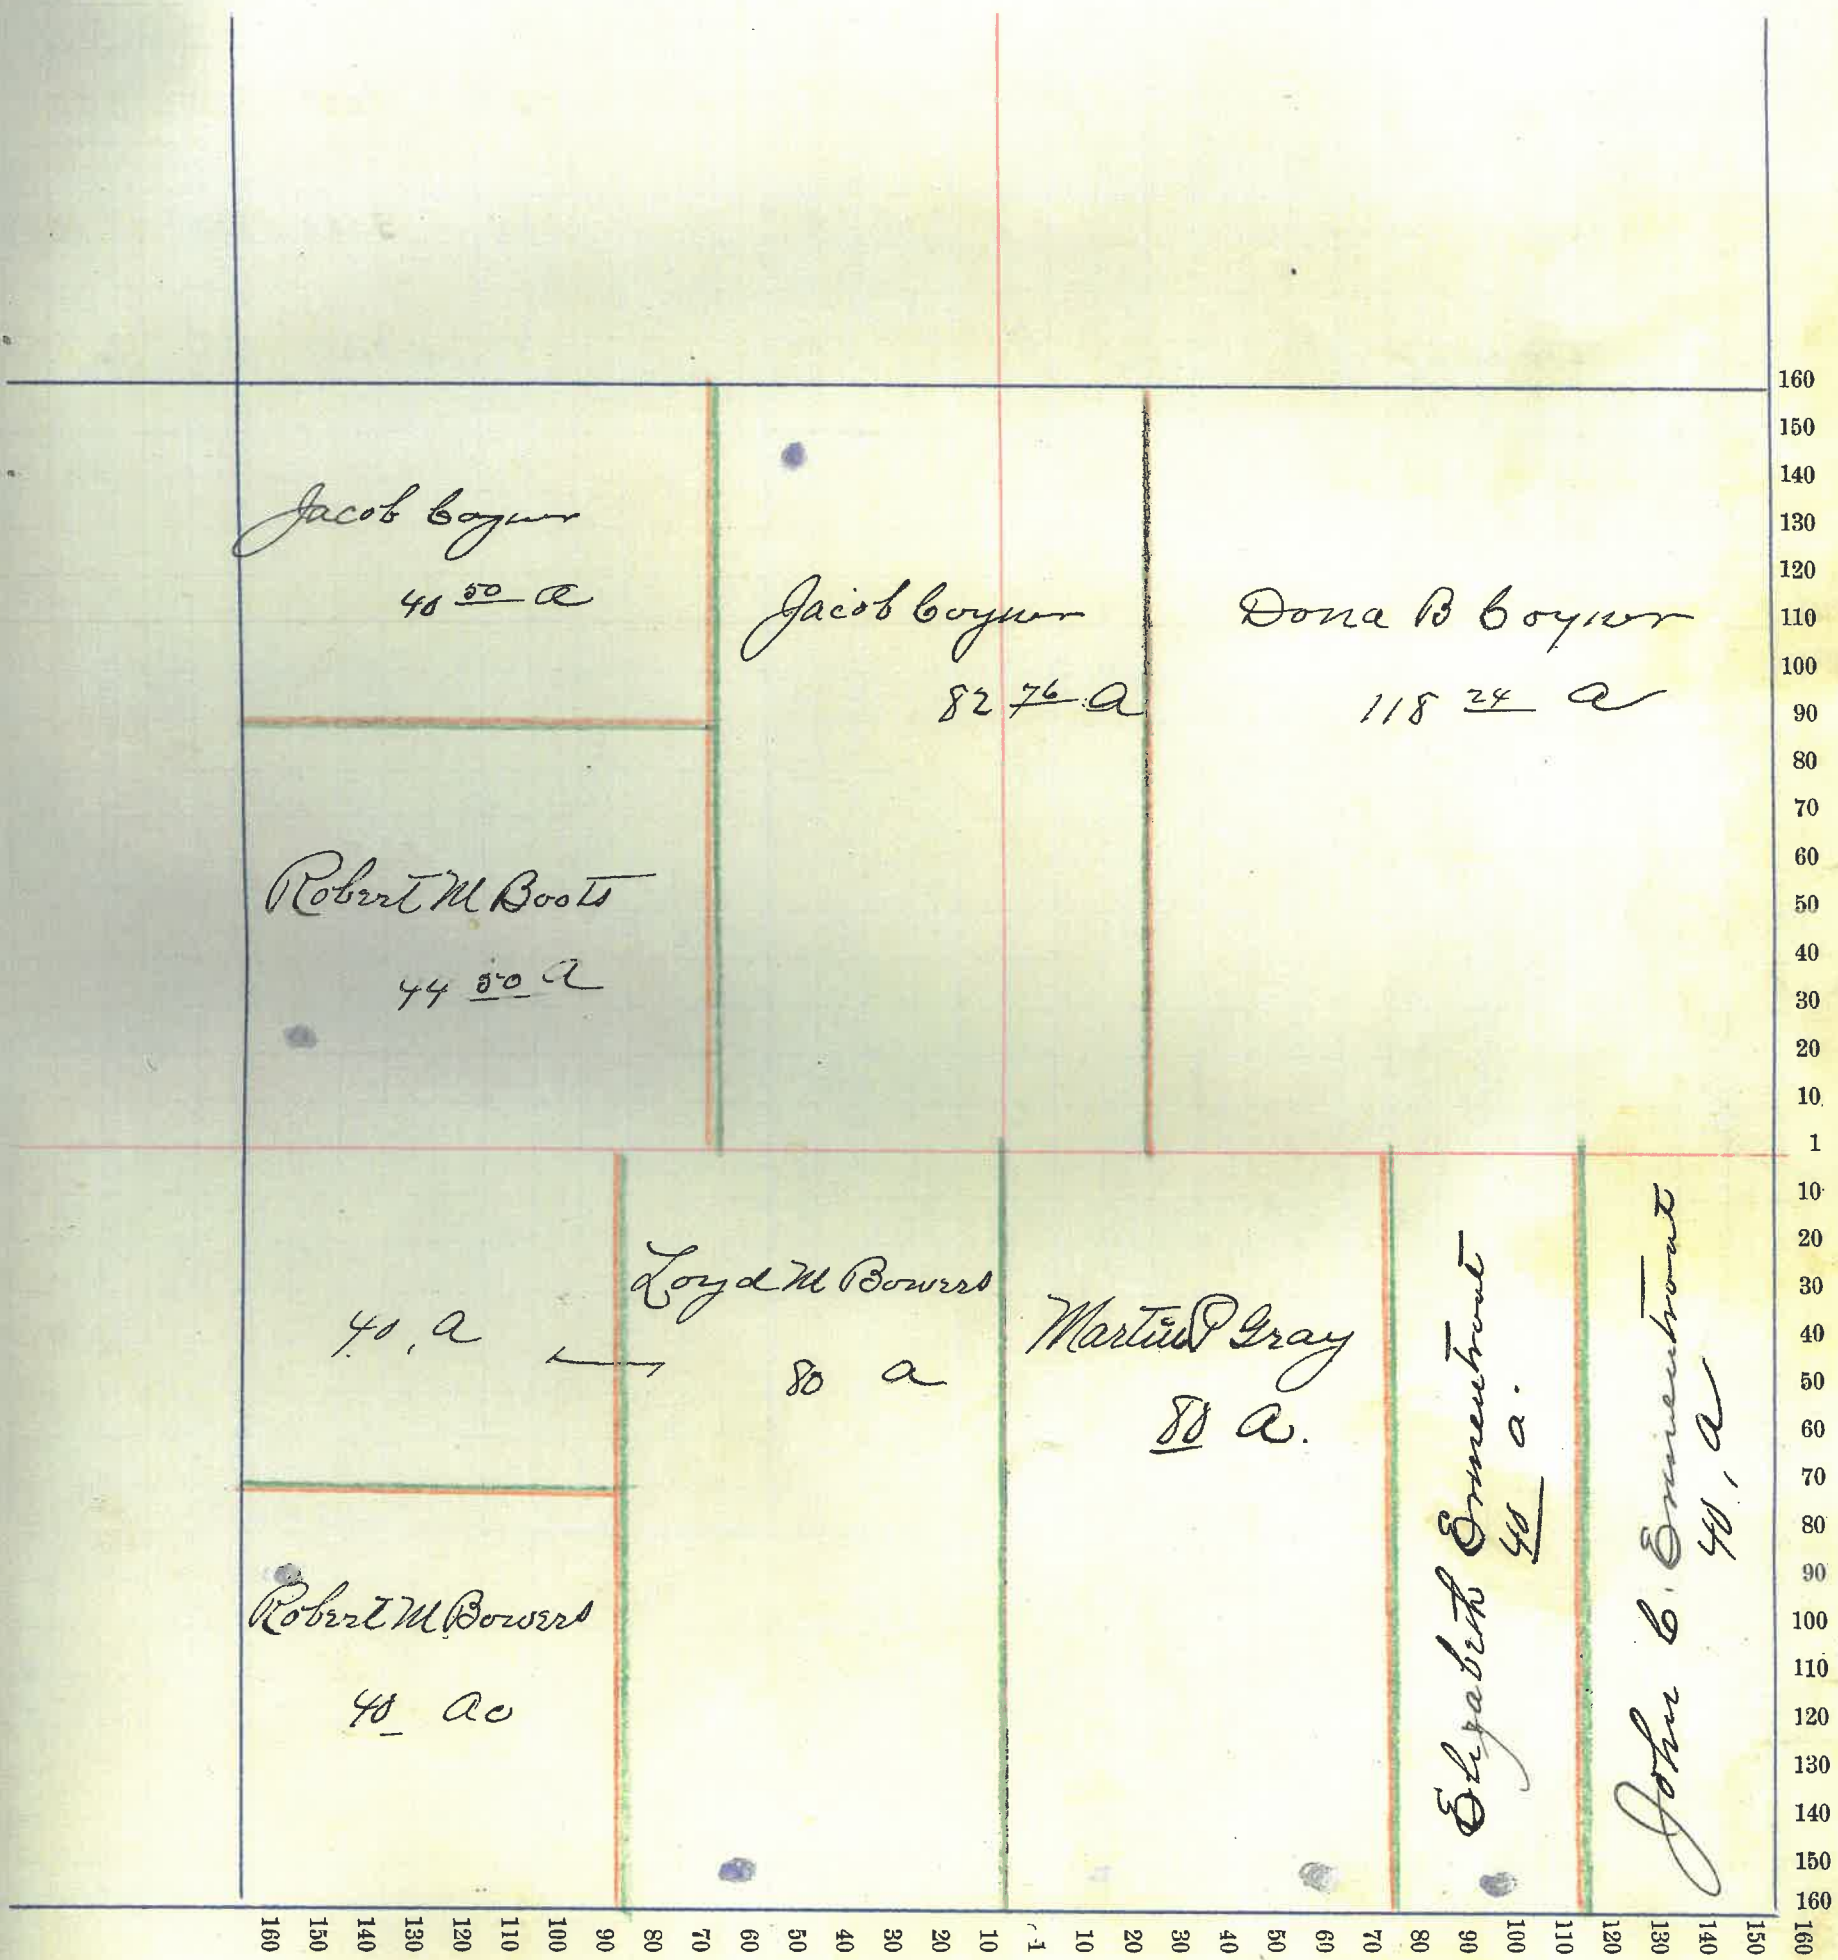 Jacob Coyner
40 50 a
Jacob Coyner
82 76 a
Dona B Coyner
118 24 a
Robert M Boots
44 50 a
40, a
Loyd M Bowers
80 a
Martin P Gray
80 a.
Elizabeth Ermentrout
40 a.
John C. Ermentrout
40, a
Robert M Bowers
40 ac
160
150
140
130
120
110
100
90
80
70
60
50
40
30
20
10
1
10
20
30
40
50
60
70
80
90
100
110
120
130
140
150
160
160 150 140 130 120 110 100 90 80 70 60 50 40 30 20 10 1 10 20 30 40 50 60 70 80 90 100 110 120 130 140 150 160